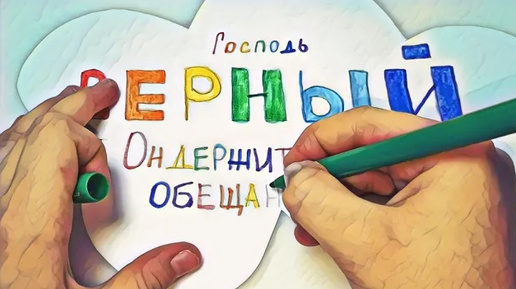 Господь
ВЕРНЫЙ
ОН ДЕРЖИТ
ОБЕЩАН